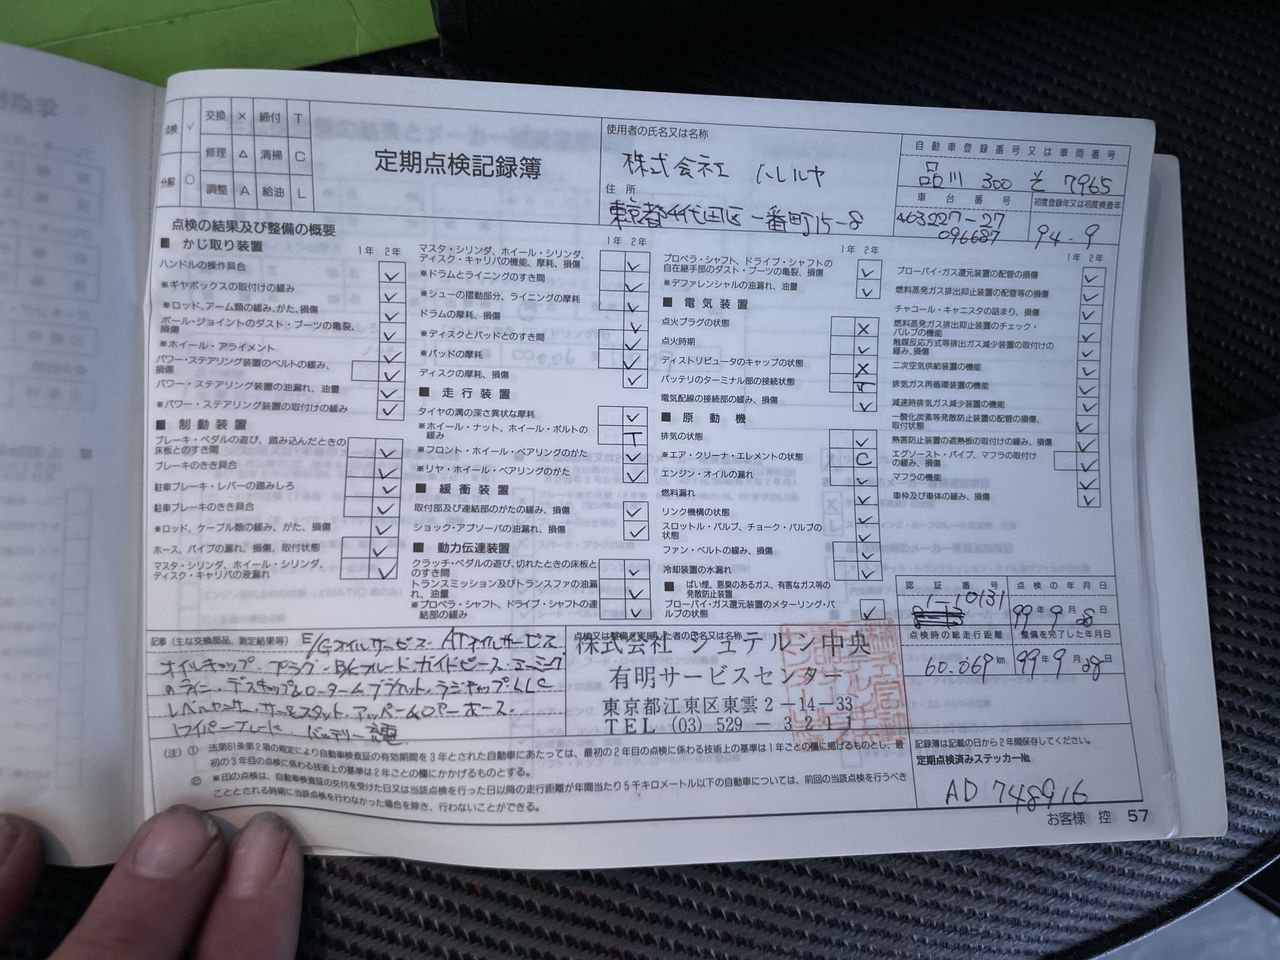 点検 ✓ 交換 × 締付 T
修理 △ 清掃 C
分解 ○ 調整 A 給油 L
定期点検記録簿
使用者の氏名又は名称
株式会社 ハレルヤ
住所
東京都千代田区一番町15-8
自動車登録番号又は車両番号
品川 300 そ 7965
車台番号
463227-27
096687
初度登録年又は初度検査年
94.9
点検の結果及び整備の概要
■ かじ取り装置
1年 2年
ハンドルの操作具合
※ギヤボックスの取付けの緩み
※ロッド、アーム類の緩み、がた、損傷
ボール・ジョイントのダスト・ブーツの亀裂、
損傷
※ホイール・アライメント
パワー・ステアリング装置のベルトの緩み、
損傷
パワー・ステアリング装置の油漏れ、油量
※パワー・ステアリング装置の取付けの緩み
■ 制動装置
ブレーキ・ペダルの遊び、踏み込んだときの
床板とのすき間
ブレーキのきき具合
駐車ブレーキ・レバーの踏みしろ
駐車ブレーキのきき具合
※ロッド、ケーブル類の緩み、がた、損傷
ホース、パイプの漏れ、損傷、取付状態
マスタ・シリンダ、ホイール・シリンダ、
ディスク・キャリパの液漏れ
1年 2年
マスタ・シリンダ、ホイール・シリンダ、
ディスク・キャリパの機能、摩耗、損傷
※ドラムとライニングのすき間
※シューの摺動部分、ライニングの摩耗
ドラムの摩耗、損傷
※ディスクとパッドとのすき間
※パッドの摩耗
ディスクの摩耗、損傷
■ 走行装置
タイヤの溝の深さ異状な摩耗
※ホイール・ナット、ホイール・ボルトの
緩み
T
※フロント・ホイール・ベアリングのがた
※リヤ・ホイール・ベアリングのがた
■ 緩衝装置
取付部及び連結部のがたの緩み、損傷
ショック・アブソーバの油漏れ、損傷
■ 動力伝達装置
クラッチ・ペダルの遊び、切れたときの床板と
のすき間
トランスミッション及びトランスファの油漏
れ、油量
※プロペラ・シャフト、ドライブ・シャフトの連
結部の緩み
1年 2年
プロペラ・シャフト、ドライブ・シャフトの
自在継手部のダスト・ブーツの亀裂、損傷
※デファレンシャルの油漏れ、油量
■ 電気装置
点火プラグの状態 ×
点火時期
ディストリビュータのキャップの状態 ×
バッテリのターミナル部の接続状態 T
電気配線の接続部の緩み、損傷
■ 原動機
排気の状態
※エア・クリーナ・エレメントの状態 C
エンジン・オイルの漏れ
燃料漏れ
リンク機構の状態
スロットル・バルブ、チョーク・バルブの
状態
ファン・ベルトの緩み、損傷
冷却装置の水漏れ
■ ばい煙、悪臭のあるガス、有害なガス等の
発散防止装置
ブローバイ・ガス還元装置のメターリング・バ
ルブの状態
1年 2年
ブローバイ・ガス還元装置の配管の損傷
燃料蒸発ガス排出抑止装置の配管等の損傷
チャコール・キャニスタの詰まり、損傷
燃料蒸発ガス排出抑止装置のチェック・
バルブの機能
触媒反応方式等排出ガス減少装置の取付けの
緩み、損傷
二次空気供給装置の機能
排気ガス再循環装置の機能
減速時排気ガス減少装置の機能
一酸化炭素等発散防止装置の配管の損傷、
取付状態
熱害防止装置の遮熱板の取付けの緩み、損傷
エグゾースト・パイプ、マフラの取付け
の緩み、損傷
マフラの機能
車枠及び車体の緩み、損傷
認証番号
1-10131
点検の年月日
99年 9月 28日
点検時の総走行距離
60.069 km
整備を完了した年月日
99年 9月 28日
記事 (主な交換部品、測定結果等) E/Gオイルサービス. ATオイルサービス.
オイルキャップ. プラグ. B/Kフルード ガイドピース. エーミング
のライン. デスキャップ&ローター&ブラケット. ラジキャップ. LLC
レベルセンサー. サーモスタット. アッパー&ロアーホース.
ワイパーブレード. バッテリー充電.
点検又は整備を実施した者の氏名又は名称
株式会社 シュテルン中央
有明サービスセンター
東京都江東区東雲2-14-33
TEL (03) 529-3211
(注) ① 法第61条第2項の規定により自動車検査証の有効期間を3年とされた自動車にあたっては、最初の2年目の点検に係わる技術上の基準は1年ごとの欄に掲げるものとし、最
初の3年目の点検に係わる技術上の基準は2年ごとの欄にかかげるものとする。
② ※印の点検は、自動車検査証の交付を受けた日又は当該点検を行った日以降の走行距離が年間当たり5千キロメートル以下の自動車については、前回の当該点検を行うべき
こととされる時期に当該点検を行わなかった場合を除き、行わないことができる。
記録簿は記載の日から2年間保存してください。
定期点検済みステッカー№
AD 748916
お客様 控 57